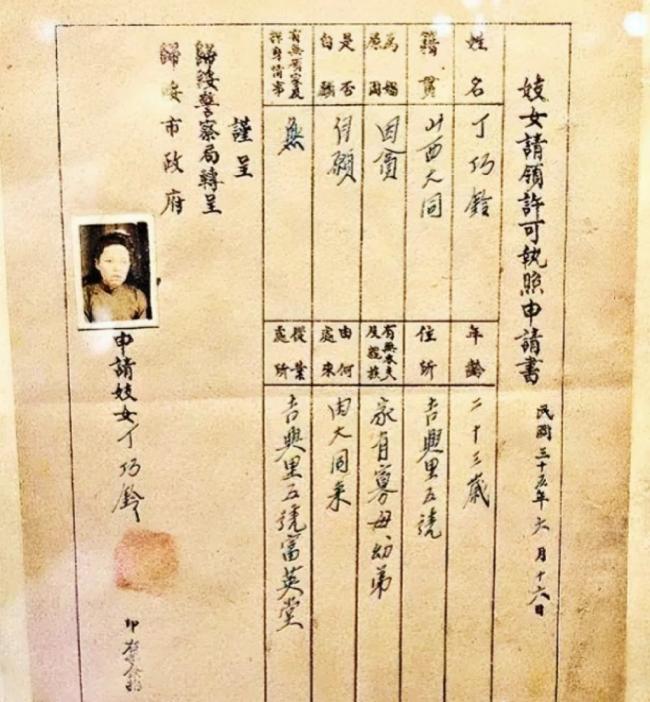 妓女請領許可執照申請書
民國三十五年六月十六日
姓名
丁巧鈴
年齡
二十三歲
籍貫
山西大同
住所
吉興里五號
為娼
原因
因貧
有無本夫
及親族
家有寡母幼弟
是否
自願
自願
由何
處來
由大同來
有無
身情事
無
從業
處所
吉興里五號富英堂
謹呈
歸綏警察局轉呈
歸綏市政府
申請妓女丁巧鈴
印